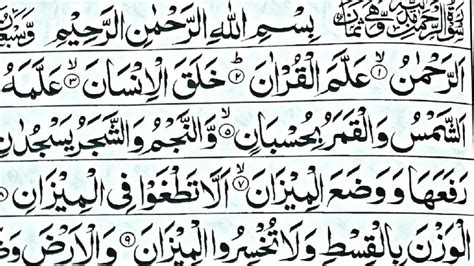 سُوْرَةُ الرَّحْمٰنِ
بِسْمِ اللّٰهِ الرَّحْمٰنِ الرَّحِيْمِ
اَلرَّحْمٰنُ ۙ﴿۱﴾ عَلَّمَ الْقُرْاٰنَ ؕ﴿۲﴾ خَلَقَ الْاِنْسَانَ ۙ﴿۳﴾ عَلَّمَهُ
اَلشَّمْسُ وَالْقَمَرُ بِحُسْبَانٍ ۪﴿۵﴾ وَّالنَّجْمُ وَالشَّجَرُ يَسْجُدٰنِ
رَفَعَهَا وَوَضَعَ الْمِيْزَانَ ۙ﴿۷﴾ اَلَّا تَطْغَوْا فِى الْمِيْزَانِ
الْوَزْنَ بِالْقِسْطِ وَلَا تُخْسِرُوا الْمِيْزَانَ ﴿۹﴾ وَالْاَرْضَ